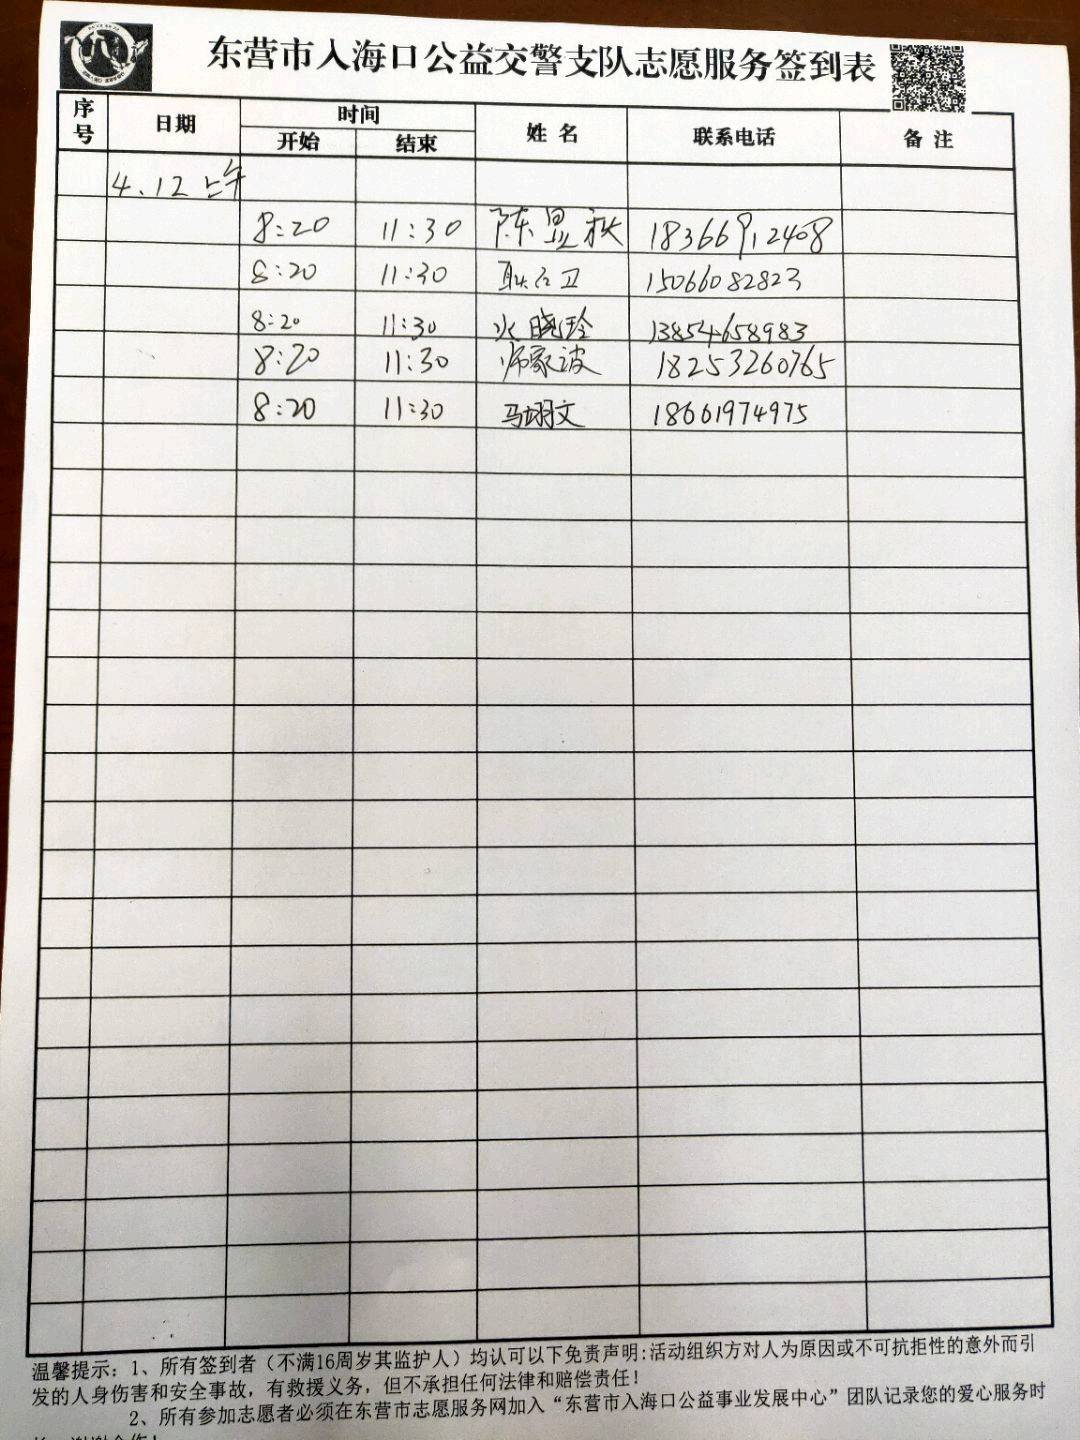 东营市入海口公益交警支队志愿服务签到表
序号 日期 时间 姓名 联系电话 备注
开始 结束
4.12上午
8:20 11:30 陈昱秋 18366912408
8:20 11:30 15066082823
8:20 11:30 晓玲 13854658983
8:20 11:30 师家波 18253260765
8:20 11:30 马翊文 18661974975
温馨提示：1、所有签到者（不满16周岁其监护人）均认可以下免责声明:活动组织方对人为原因或不可抗拒性的意外而引
发的人身伤害和安全事故，有救援义务，但不承担任何法律和赔偿责任！
2、所有参加志愿者必须在东营市志愿服务网加入“东营市入海口公益事业发展中心”团队记录您的爱心服务时